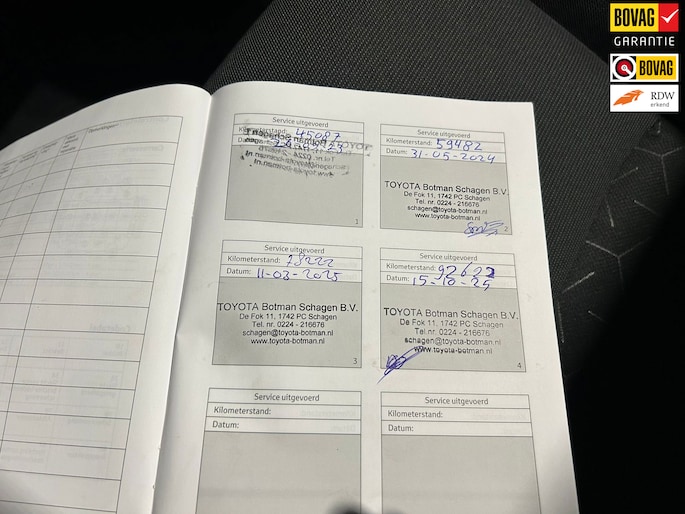 BOVAG
GARANTIE
BOVAG
RDW
erkend
Service uitgevoerd
Kilometerstand: 45087
Datum:
1
Service uitgevoerd
Kilometerstand: 59482
Datum: 31-05-2024
TOYOTA Botman Schagen B.V.
De Fok 11, 1742 PC Schagen
Tel. nr. 0224 - 216676
schagen@toyota-botman.nl
www.toyota-botman.nl
2
Service uitgevoerd
Kilometerstand: 78222
Datum: 11-03-2025
TOYOTA Botman Schagen B.V.
De Fok 11, 1742 PC Schagen
Tel. nr. 0224 - 216676
schagen@toyota-botman.nl
www.toyota-botman.nl
3
Service uitgevoerd
Kilometerstand: 92622
Datum: 15-10-25
TOYOTA Botman Schagen B.V.
De Fok 11, 1742 PC Schagen
Tel. nr. 0224 - 216676
schagen@toyota-botman.nl
www.toyota-botman.nl
4
Service uitgevoerd
Kilometerstand:
Datum:
Service uitgevoerd
Kilometerstand:
Datum: